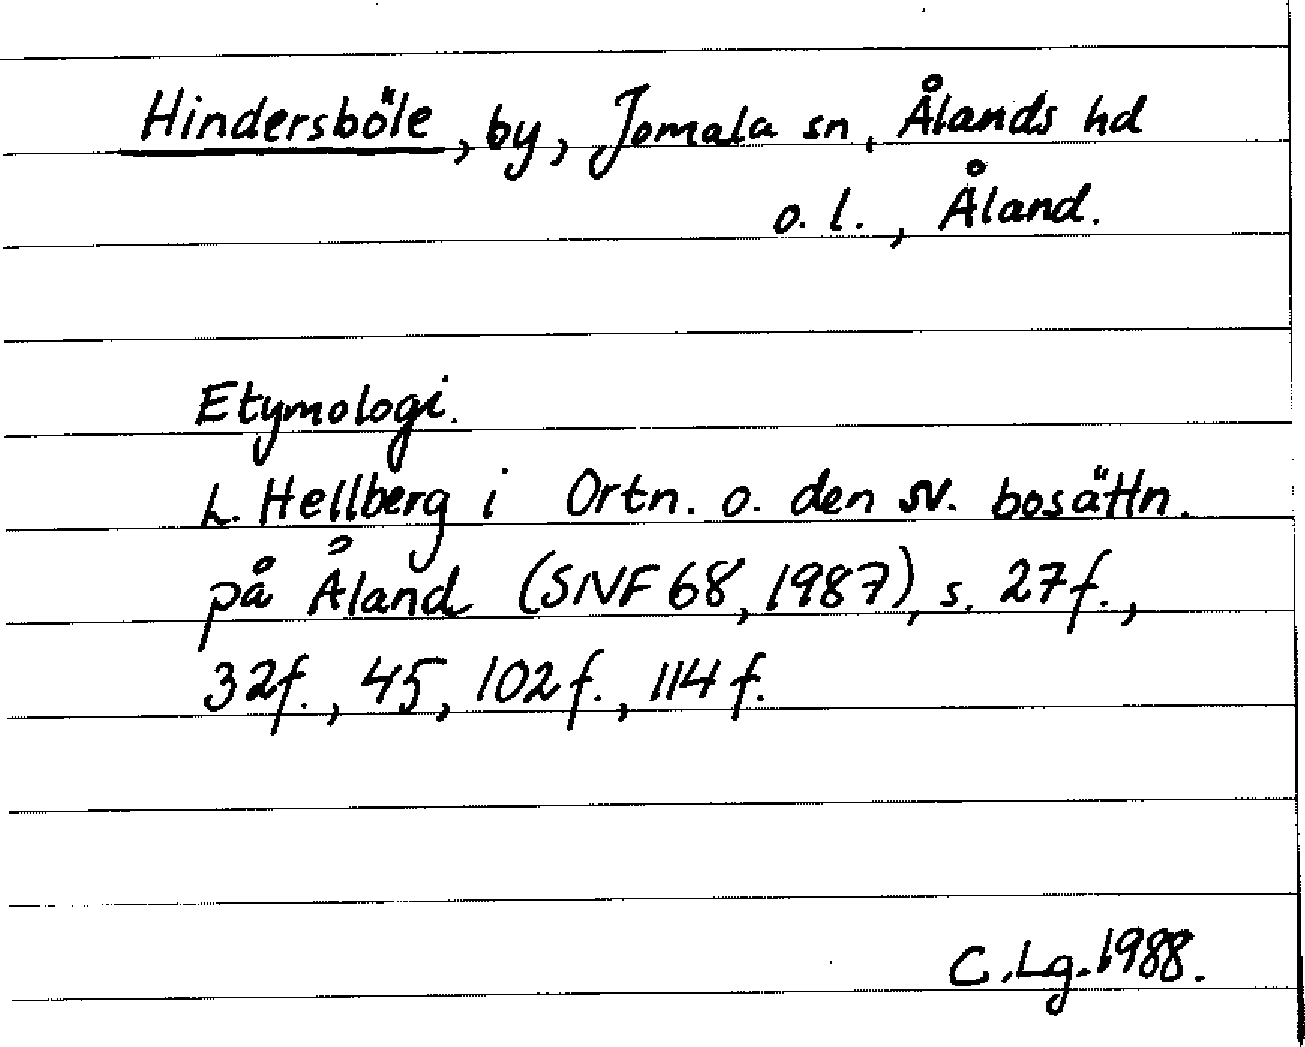 Hindersböle, by, Jomala sn, Ålands hd
o. l., Åland.
Etymologi.
L. Hellberg i Ortn. o. den sv. bosättn.
på Åland (SNF 68, 1987), s. 27f.,
32f., 45, 102f., 114f.
C. Lg. 1988.